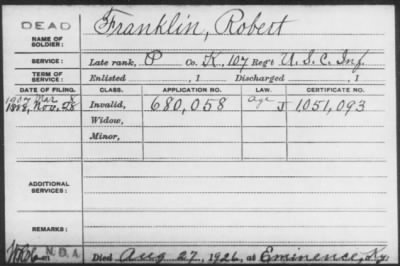 DEAD
NAME OF SOLDIER: Franklin, Robert
SERVICE: Late rank, P Co. K, 107 Reg't U.S.C. Inf.
TERM OF SERVICE: Enlisted , 1 Discharged , 1
DATE OF FILING. CLASS. APPLICATION NO. LAW. CERTIFICATE NO.
1907 Mar
1888, Nov. 28 Invalid, 680,058 Age J 1,051,093
Widow,
Minor,
ADDITIONAL SERVICES:
REMARKS:
N.D.A. Died Aug 27, 1926, at Eminence, Ky.